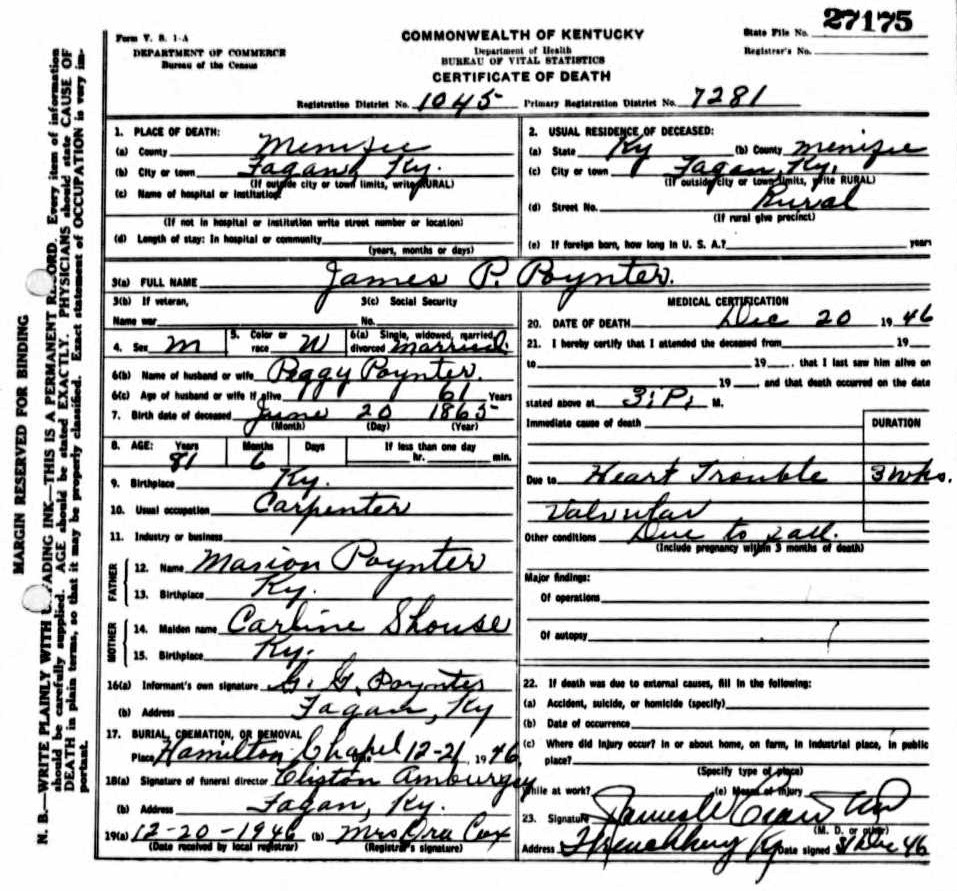 27175
Form V. S. 1-A
DEPARTMENT OF COMMERCE
Bureau of the Census
COMMONWEALTH OF KENTUCKY
Department of Health
BUREAU OF VITAL STATISTICS
CERTIFICATE OF DEATH
State File No.
Registrar's No.
Registration District No. 1045 Primary Registration District No. 7281
1. PLACE OF DEATH:
(a) County Menifee
(b) City or town Fagan, Ky.
(If outside city or town limits, write RURAL)
(c) Name of hospital or institution:
(If not in hospital or institution write street number or location)
(d) Length of stay: In hospital or community
(years, months or days)
2. USUAL RESIDENCE OF DECEASED:
(a) State Ky (b) County Menifee
(c) City or town Fagan, Ky.
(If outside city or town limits, write RURAL)
(d) Street No. Rural
(If rural give precinct)
(e) If foreign born, how long in U. S. A.? years
3(a) FULL NAME James P. Poynter.
3(b) If veteran,
Name war
3(c) Social Security
No.
4. Sex M
5. Color or
race W
6(a) Single, widowed, married,
divorced Married.
6(b) Name of husband or wife Peggy Poynter.
6(c) Age of husband or wife if alive 61 Years
7. Birth date of deceased June 20 1865
(Month) (Day) (Year)
8. AGE: Years Months Days If less than one day
81 6 hr. min.
9. Birthplace Ky.
10. Usual occupation Carpenter
11. Industry or business
FATHER
12. Name Marion Poynter
13. Birthplace Ky.
MOTHER
14. Maiden name Carline Shouse
15. Birthplace Ky.
16(a) Informant's own signature G. G. Poynter
(b) Address Fagan, Ky
17. BURIAL, CREMATION, OR REMOVAL
Place Hamilton Chapel 12-21, 1946
18(a) Signature of funeral director Cliston Amburgey
(b) Address Fagan, Ky.
19(a) 12-20-1946 (b) Mrs Ora Cox
(Date received by local registrar) (Registrar's signature)
MEDICAL CERTIFICATION
20. DATE OF DEATH Dec 20 1946
21. I hereby certify that I attended the deceased from 19
to 19 , that I last saw him alive on
19 and that death occurred on the date
stated above at 3:P. M.
Immediate cause of death
DURATION
Due to Heart Trouble 3 wks.
Valvular
Other conditions Due to
(Include pregnancy within 3 months of death)
Major findings:
Of operations
Of autopsy
22. If death was due to external causes, fill in the following:
(a) Accident, suicide, or homicide (specify)
(b) Date of occurrence
(c) Where did injury occur? In or about home, on farm, in industrial place, in public
place?
(Specify type of place)
While at work? (e) Means of injury
23. Signature
(M. D. or other)
Address Frenchburg Ky Date signed 31 Dec 46
MARGIN RESERVED FOR BINDING
N. B.—WRITE PLAINLY WITH UNFADING INK—THIS IS A PERMANENT RECORD. Every item of information
should be carefully supplied. AGE should be stated EXACTLY. PHYSICIANS should state CAUSE OF
DEATH in plain terms, so that it may be properly classified. Exact statement of OCCUPATION is very im-
portant.